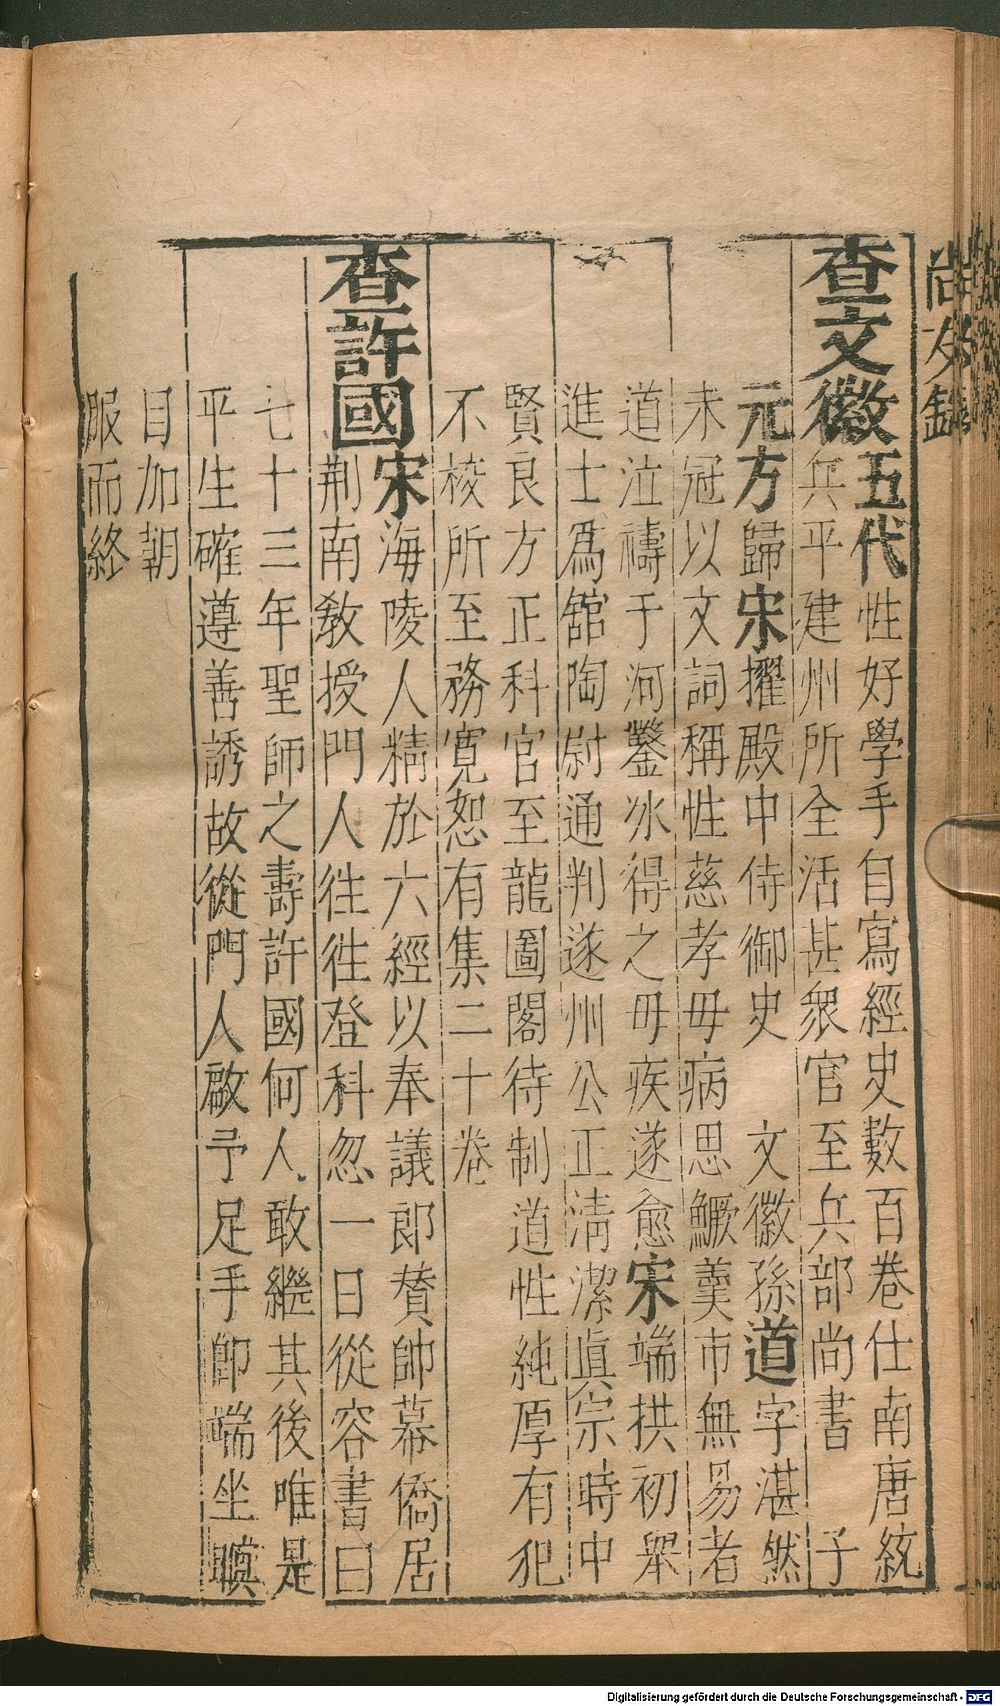 尚友錄
查文徽五代性好學手自寫經史數百卷仕南唐統
兵平建州所全活甚衆官至兵部尚書 子
元方歸宋擢殿中侍御史 文徽孫道字湛然
未冠以文詞稱性慈孝母病思鱖羹市無昜者
道泣禱于河鑿冰得之母疾遂愈宋端拱初舉
進士爲舘陶尉通判遂州公正淸潔眞宗時中
賢良方正科官至龍圖閣待制道性純厚有犯
不校所至務寛恕有集二十卷
查許國宋海陵人精於六經以奉議郎賛帥幕僑居
荆南敎授門人徃徃登科忽一日從容書曰
七十三年聖師之壽許國何人敢繼其後唯是
平生確遵善誘故從門人啟予足手卽端坐瞑
目加朝
服而終
Digitalisierung gefördert durch die Deutsche Forschungsgemeinschaft - DFG